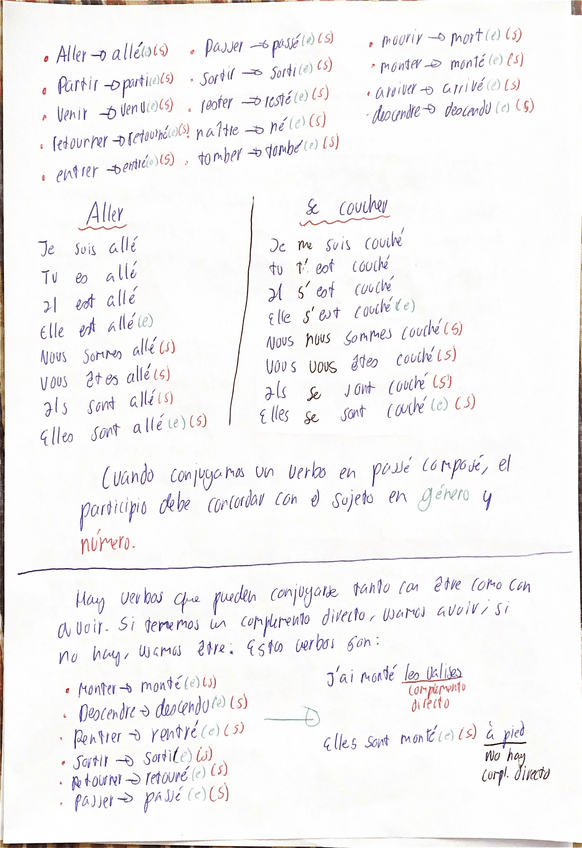 • Aller → allé(e)(s)
• Partir → parti(e)(s)
• Venir → venu(e)(s)
• retourner → retourné(e)(s)
• entrer → entré(e)(s)
• Passer → passé(e)(s)
• Sortir → sorti(e)(s)
• rester → resté(e)(s)
• naître → né(e)(s)
• tomber → tombé(e)(s)
• mourir → mort(e)(s)
• monter → monté(e)(s)
• arriver → arrivé(e)(s)
• descendre → descendu(e)(s)
Aller
Je suis allé
Tu es allé
Il est allé
Elle est allé(e)
Nous sommes allé(s)
Vous êtes allé(s)
Ils sont allé(s)
Elles sont allé(e)(s)
Se coucher
Je me suis couché
tu t' est couché
Il s' est couché
Elle s' est couché(e)
Nous nous sommes couché(s)
Vous vous êtes couché(s)
Ils se sont couché(s)
Elles se sont couché(e)(s)
Cuando conjugamos un verbo en passé composé, el
participio debe concordar con el sujeto en género y
número.
Hay verbos que pueden conjugarse tanto con être como con
avoir. Si tenemos un complemento directo, usamos avoir; si
no hay, usamos être. Estos verbos son:
• Monter → monté(e)(s)
• Descendre → descendu(e)(s)
• Rentrer → rentré(e)(s)
• Sortir → sorti(e)(s)
• Retourner → retouré(e)(s)
• Passer → passé(e)(s)
J'ai monté les valises
complemento
directo
Elles sont monté(e)(s) à pied
No hay
compl. directo